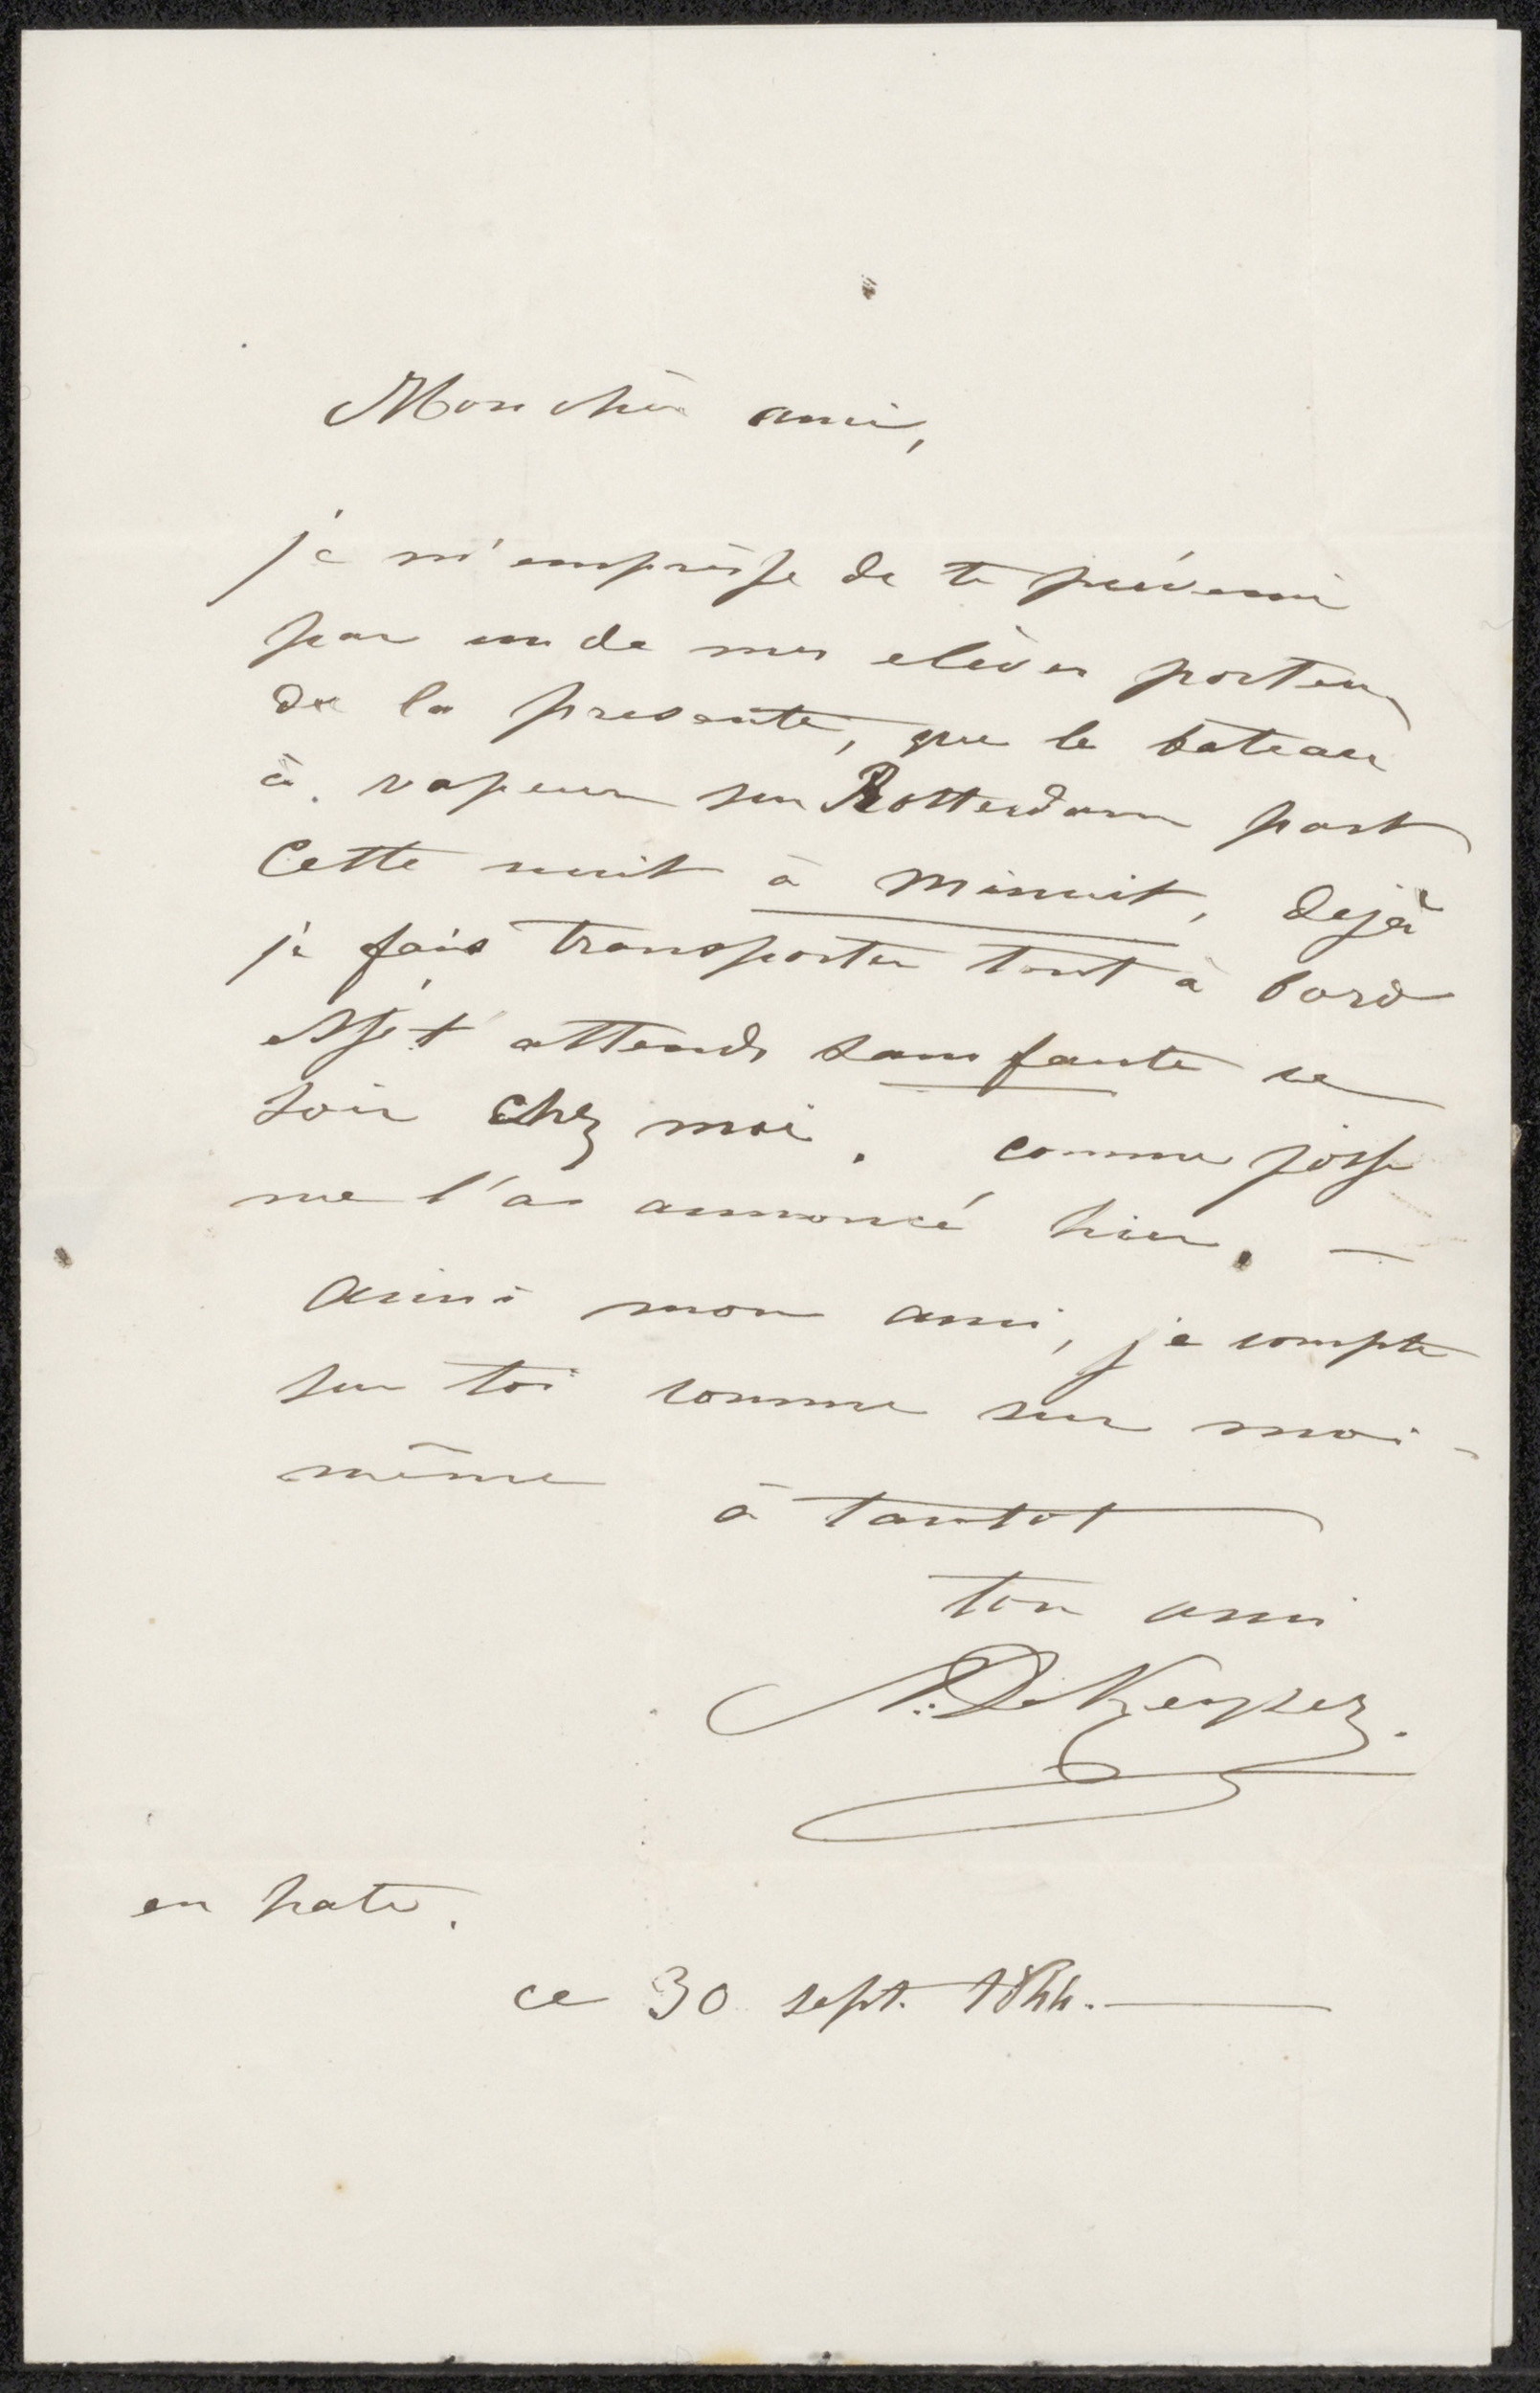 Mon chèr ami,
je m'emprèsse de te prévenir
par un de mes elèves porteur
de la presente, que le bateau
à vapeur sur Rotterdam part
Cette nuit à Minuit, dejà
je fais transporter tout à bord
et je t'attends sans faute ce
soir chez moi. comme josse
me l'as annoncé hier. —
ainsi mon ami, je compte
sur toi comme sur moi-
même à tantot
ton ami
N: De Keyser.
en hate.
ce 30 sept. 1844. —